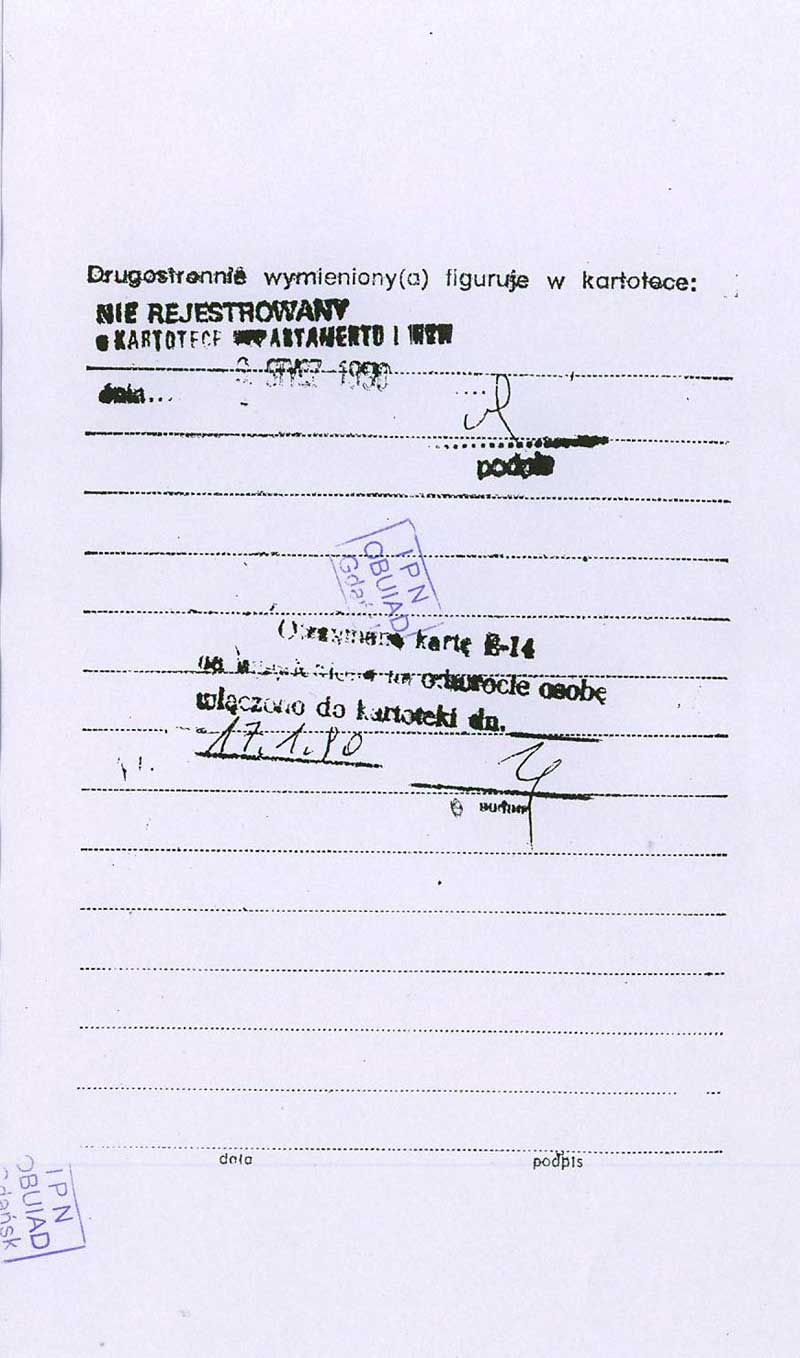 Drugostronnie wymieniony(a) figuruje w kartotece:
NIE REJESTROWANY
KARTOTECE DEPARTAMENTU I MSW
STYCZ 1990
dnia...
podpis
IPN
OBUIAD
Gdańsk
Otrzymano kartę E-14
na odwrocie osobę
włączono do kartoteki dn.
17.1.90
data podpis
IPN
OBUIAD
Gdańsk